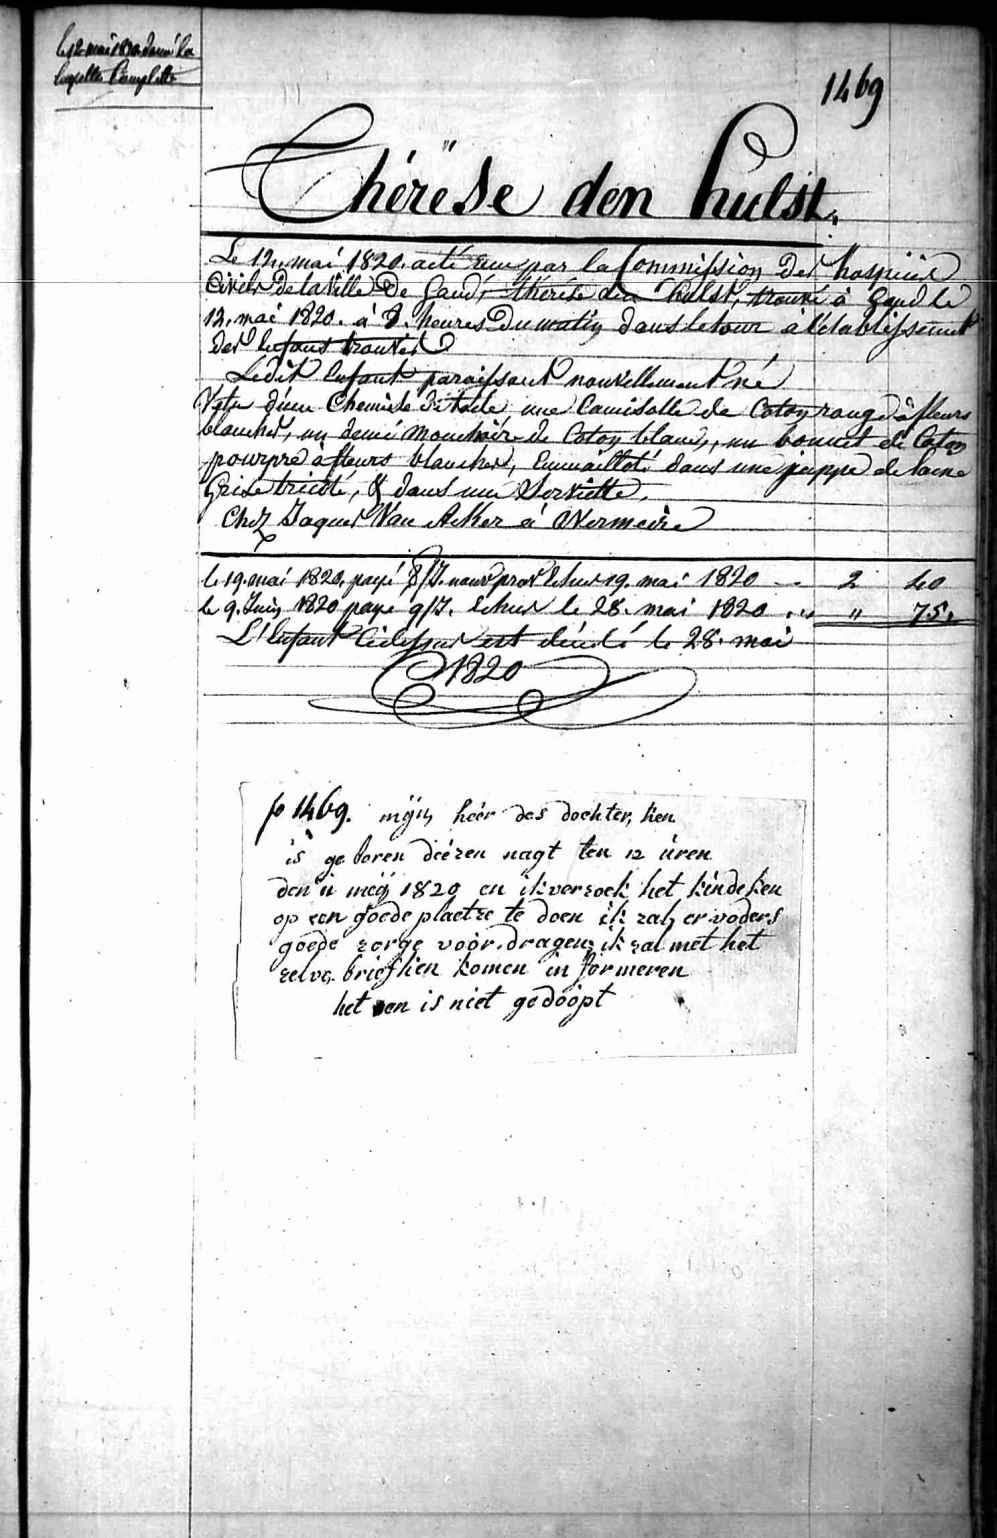 le 12 mai 1820 donné la
layette Complette
1469
Thérèse den hulst.
Le 12. mai 1820. a été reçu par la Commission des hospices
Civils de la Ville de Gand, thérèse den hulst, trouvé à Gand le
12. mai 1820. à 8. heures du matin dans le tour à l'établissement
des Enfans trouvés
Ledit Enfant paraissant nouvellement né
Vetu d'une Chemise de toile, une Camisolle de Coton rouge à fleurs
blanches, un demi mouchoir de Coton blanc, un bonnet de Coton
pourpre a fleurs blanches, Emmailloté dans une juppe de laine
Grise tricoté, & dans une Serviette.
Chez Jaques Van Acker à Overmeire
le 19. mai 1820. payé 8/J. nouv prov Echus 19. mai 1820 -- 2 40
le 9. Juin 1820 payé 9/J. Echus le 28. mai 1820 . . . " 75.
L'Enfant Cidessus est décédé le 28. mai
1820
fo 1469. mijn heer des dochter, ken
is ge boren deezen nagt ten 12 uren
den 11 meij 1820 en ik versoek het kindeken
op een goede plaetse te doen ik zal er voders
goede zorge voor dragen ik zal met het
zelve briefken komen in formeren
het en is niet gedoopt